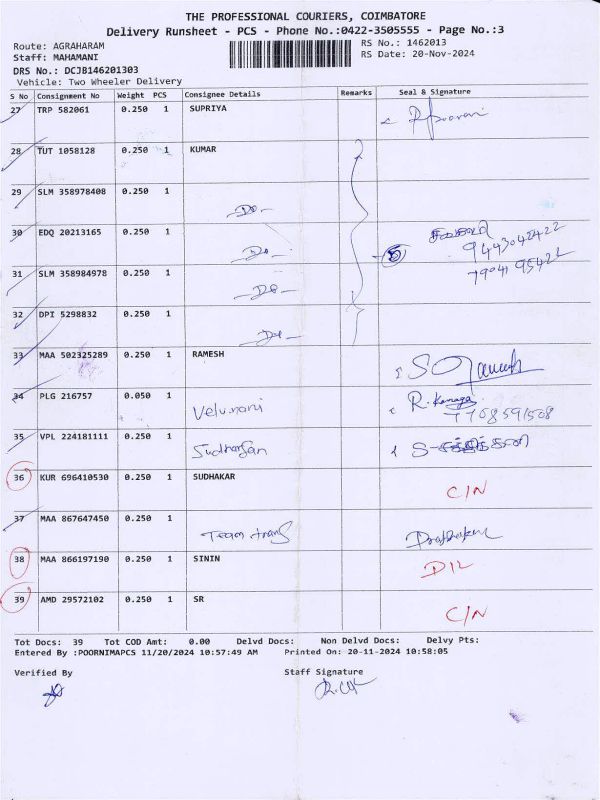 THE PROFESSIONAL COURIERS, COIMBATORE
Delivery Runsheet - PCS - Phone No.:0422-3505555 - Page No.:3
Route: AGRAHARAM RS No.: 1462013
Staff: MAHAMANI RS Date: 20-Nov-2024
DRS No.: DCJB146201303
Vehicle: Two Wheeler Delivery
S No Consignment No Weight PCS Consignee Details Remarks Seal & Signature
27 TRP 582061 0.250 1 SUPRIYA
28 TUT 1058128 0.250 1 KUMAR
29 SLM 358978408 0.250 1
-Do-
30 EDQ 20213165 0.250 1 9443042422
-Do- 7904195422
31 SLM 358984978 0.250 1
-Do-
32 DPI 5298832 0.250 1
-Do-
33 MAA 502325289 0.250 1 RAMESH
34 PLG 216757 0.050 1 Velumani R. Kanaga
7708591508
35 VPL 224181111 0.250 1 Sudharsan
36 KUR 696410530 0.250 1 SUDHAKAR C/N
37 MAA 867647450 0.250 1 Team trans Prabhakar
38 MAA 866197190 0.250 1 SININ D/L
39 AMD 29572102 0.250 1 SR C/N
Tot Docs: 39 Tot COD Amt: 0.00 Delvd Docs: Non Delvd Docs: Delvy Pts:
Entered By :POORNIMAPCS 11/20/2024 10:57:49 AM Printed On: 20-11-2024 10:58:05
Verified By Staff Signature